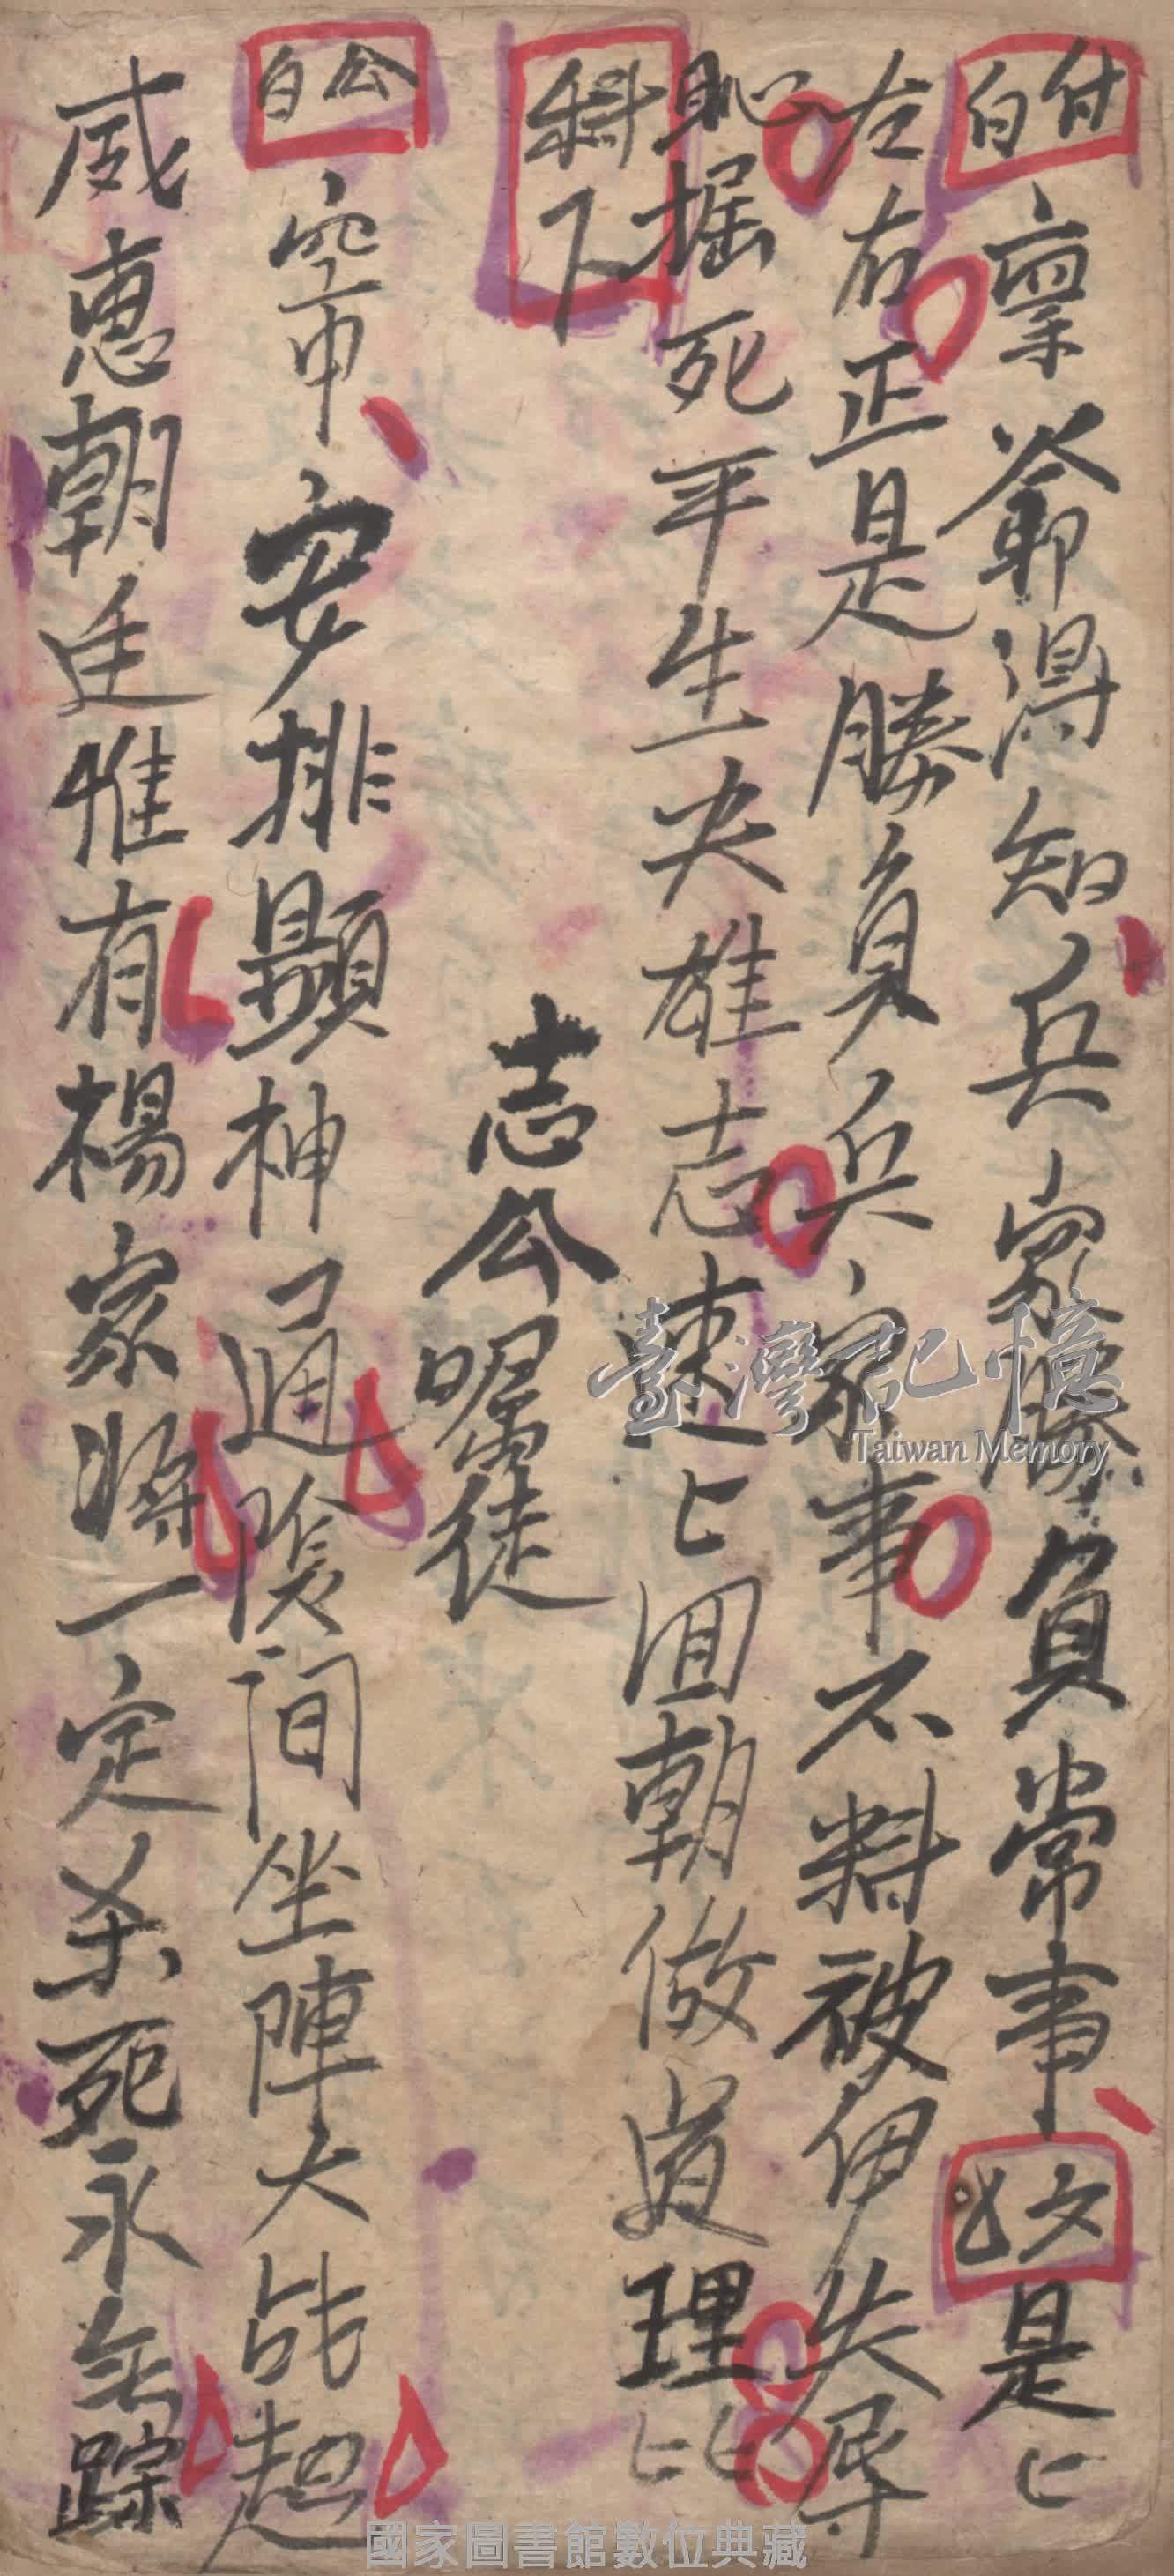 付白 稟爺得知兵家勝負常事 文㐌 是匕
左右正是勝負兵家事不料被伊失辱
恥掘死平生英雄志速匕回朝做道理匕匕
科下
志公囑徒
公白 牢中安排顯神通陰間坐陣大战起
威惠朝廷惟有楊家將一定杀死永無踪
臺灣記憶
Taiwan Memory
國家圖書館數位典藏